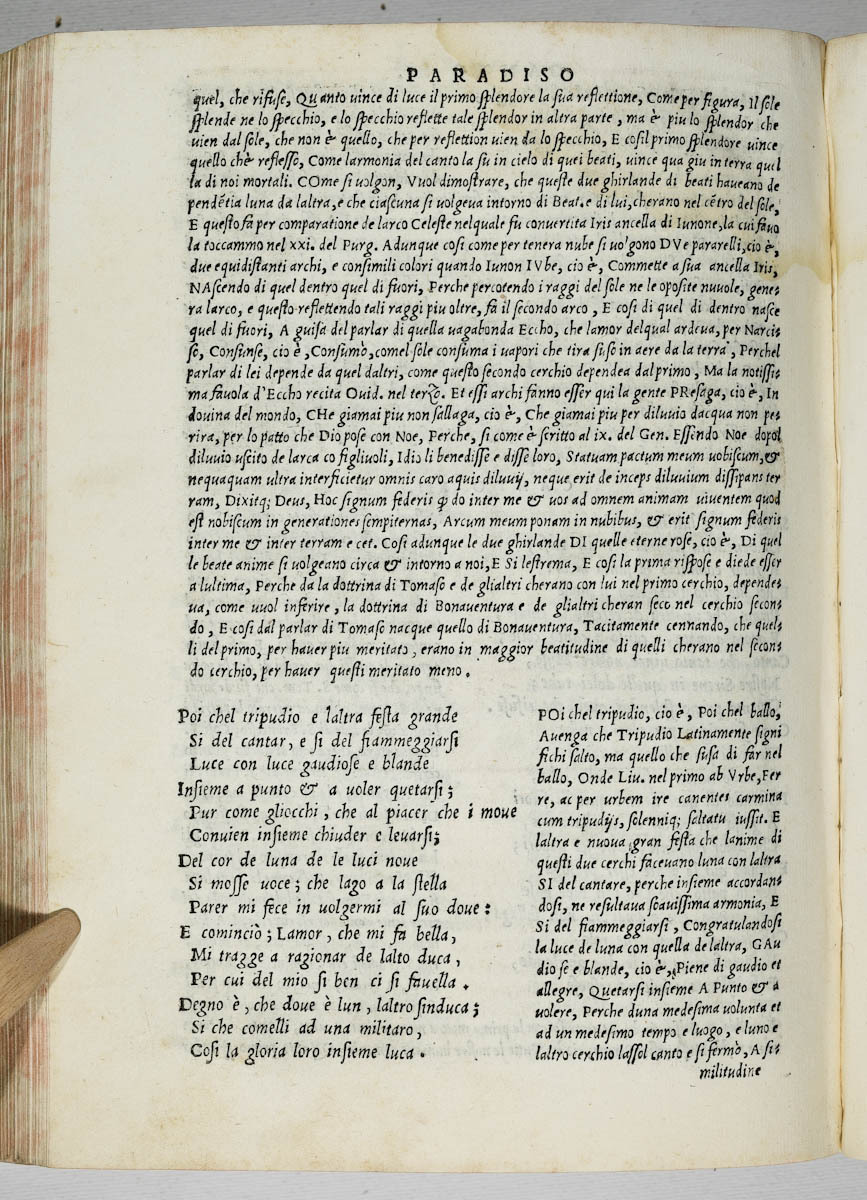 PARADISO
quel, che rifuse, Quanto uince di luce il primo splendore la sua reflettione, Come per figura, Il sole
splende ne lo specchio, e lo specchio reflette tale splendor in altra parte, ma è piu lo splendor che
uien dal sole, che non è quello, che per reflettion uien da lo specchio, E cosi l primo splendore uince
quello chè reflesso, Come larmonia del canto la su in cielo di quei beati, uince qua giu in terra quel
la di noi mortali. COme si uolgon, Vuol dimostrare, che queste due ghirlande di beati haueano de
pendētia luna da laltra, e che ciascuna si uolgeua intorno di Beat. e di lui, cherano nel cētro del sole,
E questo fa per comparatione de larco Celeste nelquale fu conuertita Iris ancella di Iunone, la cui fauo
la toccammo nel xxi. del Purg. Adunque cosi come per tenera nube si uolgono DVe pararelli, cio è,
due equidistanti archi, e consimili colori quando Iunon IVbe, cio è, Commette a sua ancella Iris,
NAscendo di quel dentro quel di fuori, Perche percotendo i raggi del sole ne le oposite nuuole, gene-
ra larco, e questo reflettendo tali raggi piu oltre, fa il secondo arco, E cosi di quel di dentro nasce
quel di fuori, A guisa del parlar di quella uagabonda Eccho, che lamor delqual ardeua, per Narcis
so, Consunse, cio è, Consumò, comel sole consuma i uapori che tira suso in aere da la terra, Perchel
parlar di lei depende da quel daltri, come questo secondo cerchio dependea dal primo, Ma la notissi-
ma fauola d'Eccho recita Ouid. nel terzo. Et essi archi fanno esser qui la gente PResaga, cio è, In
douina del mondo, CHe giamai piu non sallaga, cio è, Che giamai piu per diluuio dacqua non pe-
rira, per lo patto che Dio pose con Noe, Perche, si come è scritto al ix. del Gen. Essendo Noe dopol
diluuio uscito de larca co figliuoli, Idio li benedisse e disse loro, Statuam pactum meum uobiscum, &
nequaquam ultra interficietur omnis caro aquis diluuij, neque erit de inceps diluuium dissipans ter
ram, Dixitq; Deus, Hoc signum federis q̃ do inter me & uos ad omnem animam uiuentem quod
est nobiscum in generationes sempiternas, Arcum meum ponam in nubibus, & erit signum federis
inter me & inter terram e cet. Cosi adunque le due ghirlande DI quelle eterne rose, cio è, Di quel
le beate anime si uolgeano circa & intorno a noi, E Si lestrema, E cosi la prima rispose e diede esser
a lultima, Perche da la dottrina di Tomaso e de glialtri cherano con lui nel primo cerchio, depende-
ua, come uuol inferire, la dottrina di Bonauentura e de glialtri cheran seco nel cerchio secon-
do, E cosi dal parlar di Tomaso nacque quello di Bonauentura, Tacitamente cennando, che quel-
li del primo, per hauer piu meritato, erano in maggior beatitudine di quelli cherano nel secon-
do cerchio, per hauer questi meritato meno.
Poi chel tripudio e laltra festa grande
Si del cantar, e si del fiammeggiarsi
Luce con luce gaudiose e blande
Insieme a punto & a uoler quetarsi;
Pur come gliocchi, che al piacer che i moue
Conuien insieme chiuder e leuarsi;
Del cor de luna de le luci noue
Si mosse uoce; che lago a la stella
Parer mi fece in uolgermi al suo doue:
E cominciò; Lamor, che mi fa bella,
Mi tragge a ragionar de lalto duca,
Per cui del mio si ben ci si fauella.
Degno è, che doue è lun, laltro sinduca;
Si che comelli ad una militaro,
Cosi la gloria loro insieme luca.
POi chel tripudio, cio è, Poi chel ballo,
Auenga che Tripudio Latinamente signi
fichi salto, ma quello che susa di far nel
ballo, Onde Liu. nel primo ab Vrbe, Fer
re, ac per urbem ire canentes carmina
cum tripudijs, solenniq; saltatu iussit. E
laltra e nuoua gran festa che lanime di
questi due cerchi faceuano luna con laltra
SI del cantare, perche insieme accordan-
dosi, ne resultaua soauissima armonia, E
Si del fiammeggiarsi, Congratulandosi
la luce de luna con quella de laltra, GAu
diose e blande, cio è, Piene di gaudio et
allegre, Quetarsi insieme A Punto & a
uolere, Perche duna medesima uolunta et
ad un medesimo tempo e luogo, e luno e
laltro cerchio lassol canto e si fermò, A si-
militudine